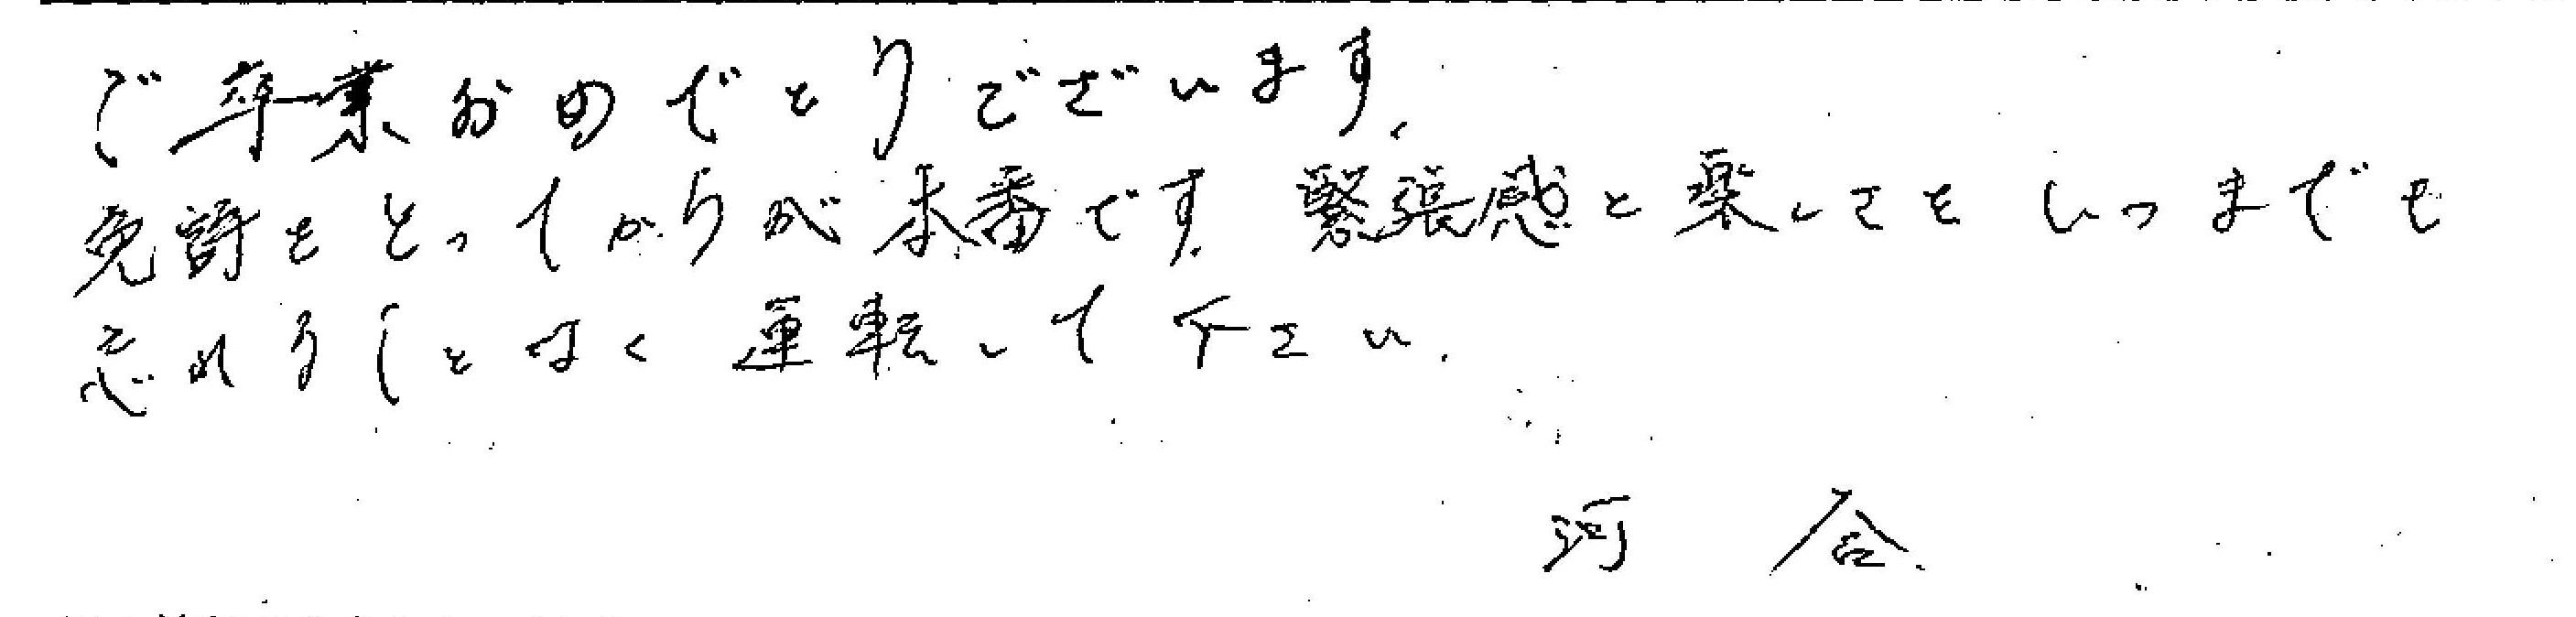 ご卒業おめでとうございます。
免許をとってからが本番です。緊張感と楽しさをいつまでも
忘れることなく運転して下さい。
河合